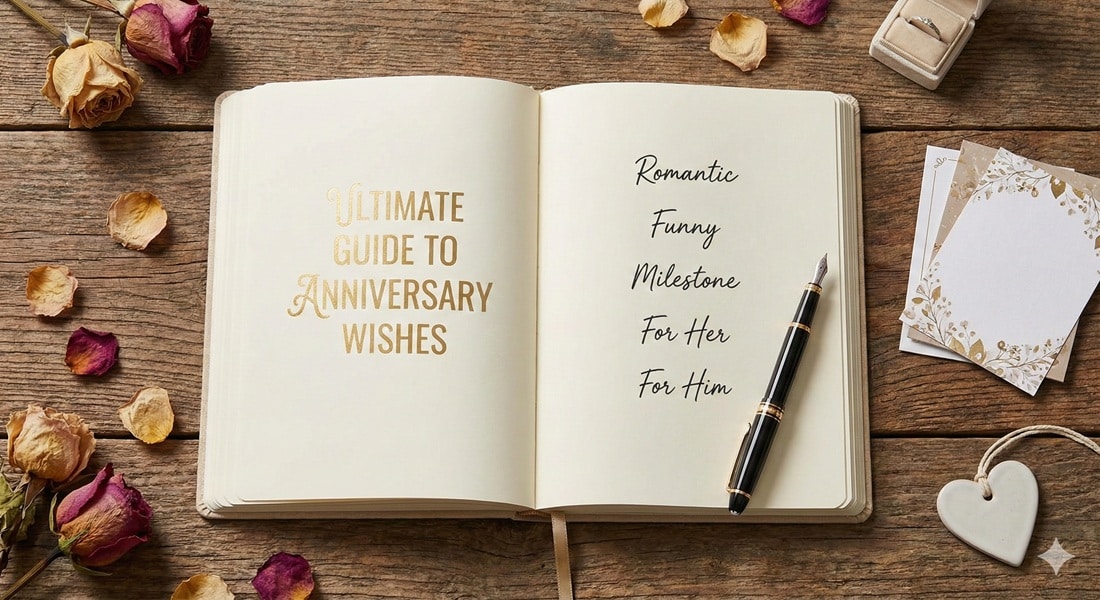 ULTIMATE
GUIDE TO
ANNIVERSARY
WISHES
Romantic
Funny
Milestone
For Her
For Him